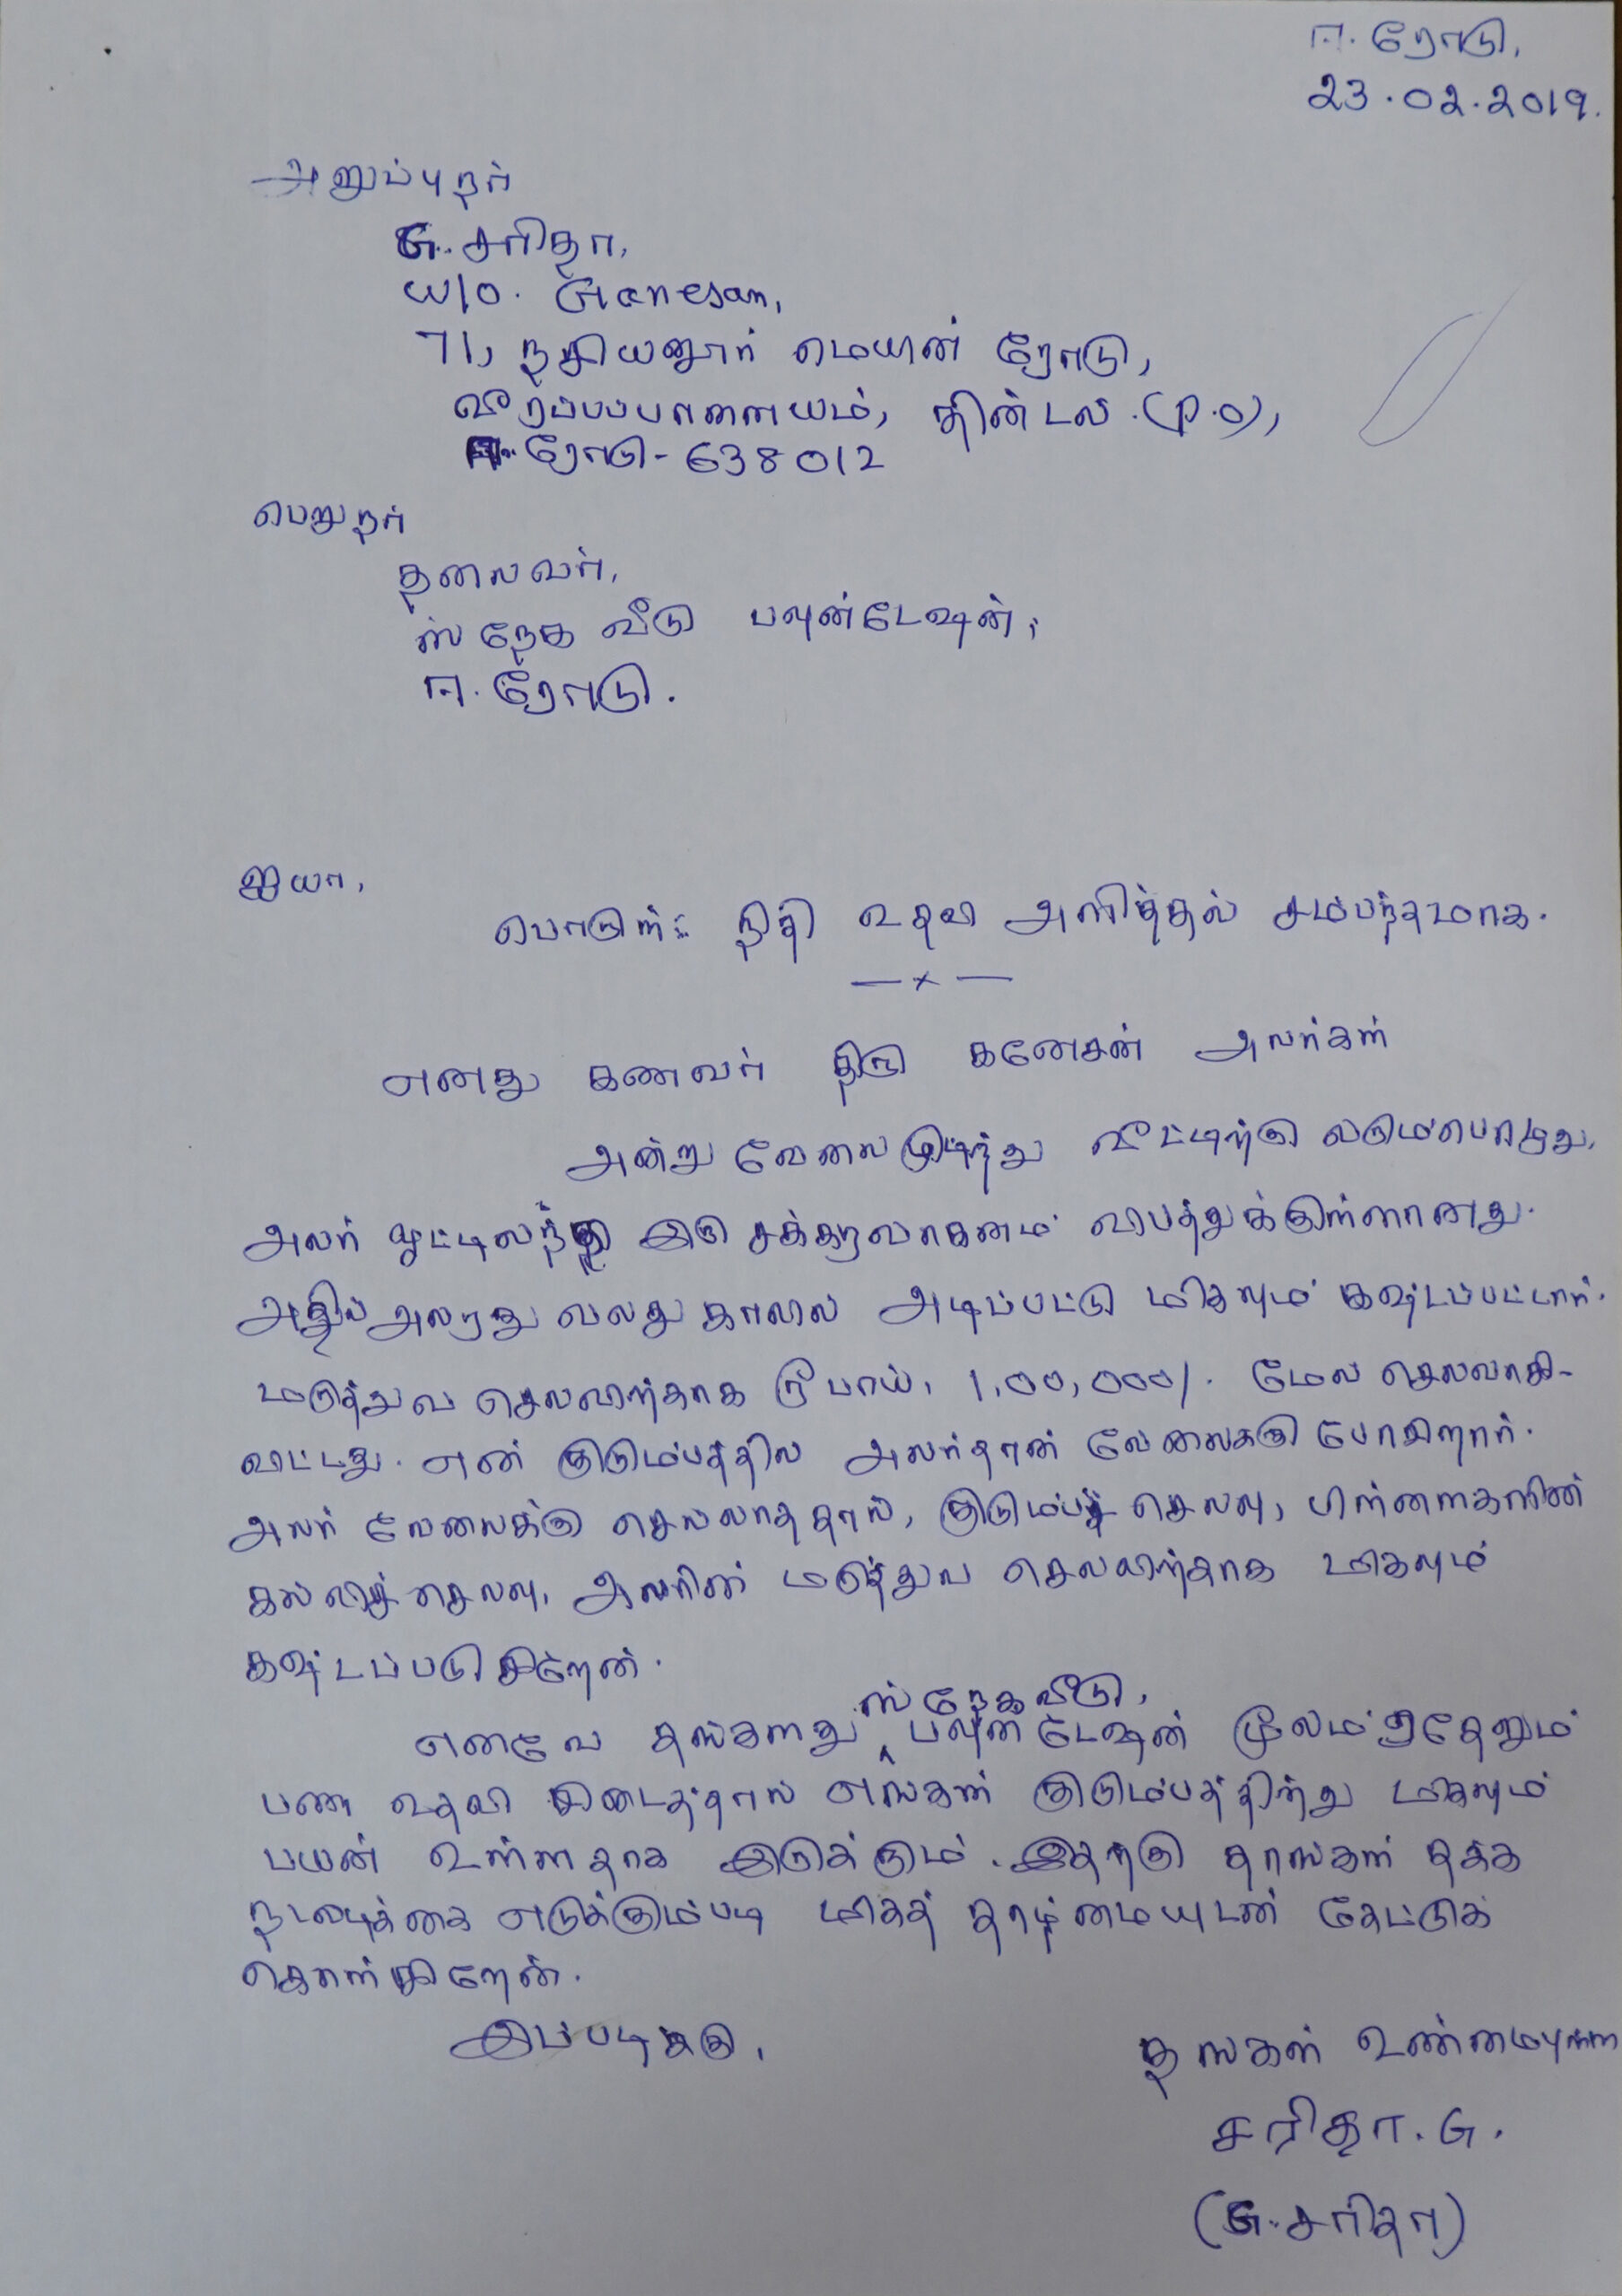 ஈ.ரோடு,
23.02.2019.
அனுப்புநர்
G. சரிதா,
W/O. Ganesan,
71, நசியனூர் மெயின் ரோடு,
வீரப்பம்பாளையம், திண்டல்.(P.O),
ஈ.ரோடு - 638012
பெறுநர்
தலைவர்,
ஸ்நேக வீடு பவுன்டேஷன்,
ஈ.ரோடு.
ஐயா,
பொருள்: நிதி உதவி அளித்தல் சம்பந்தமாக.
—x—
எனது கணவர் திரு கனேசன் அவர்கள்
அன்று வேலைமுடிந்து வீட்டிற்கு வரும்பொழுது,
அவர் ஓட்டிவந்த இரு சக்கரவாகனம் விபத்துக்குள்ளானது.
அதில் அவரது வலது காலில் அடிப்பட்டு மிகவும் கஷ்டப்பட்டார்.
மருத்துவ செலவிற்காக ரூபாய். 1,00,000/. மேல் செலவாகி-
விட்டது. என் குடும்பத்தில் அவர்தான் வேலைக்கு போகிறார்.
அவர் வேலைக்கு செல்லாததால், குடும்பச் செலவு, பிள்ளைகளின்
கல்விச் செலவு, அவரின் மருத்துவ செலவிற்காக மிகவும்
கஷ்டப்படுகிறேன்.
எனவே தங்களது ஸ்நேகவீடு, பவுன்டேஷன் மூலம் ஏதேனும்
பண உதவி கிடைத்தால் எங்கள் குடும்பத்திற்கு மிகவும்
பயன் உள்ளதாக இருக்கும். இதற்கு தாங்கள் தக்க
நடவடிக்கை எடுக்கும்படி மிகத் தாழ்மையுடன் கேட்டுக்
கொள்கிறேன்.
இப்படிக்கு,
தங்கள் உண்மையுள்ள
சரிதா. G.
(G. சரிதா)